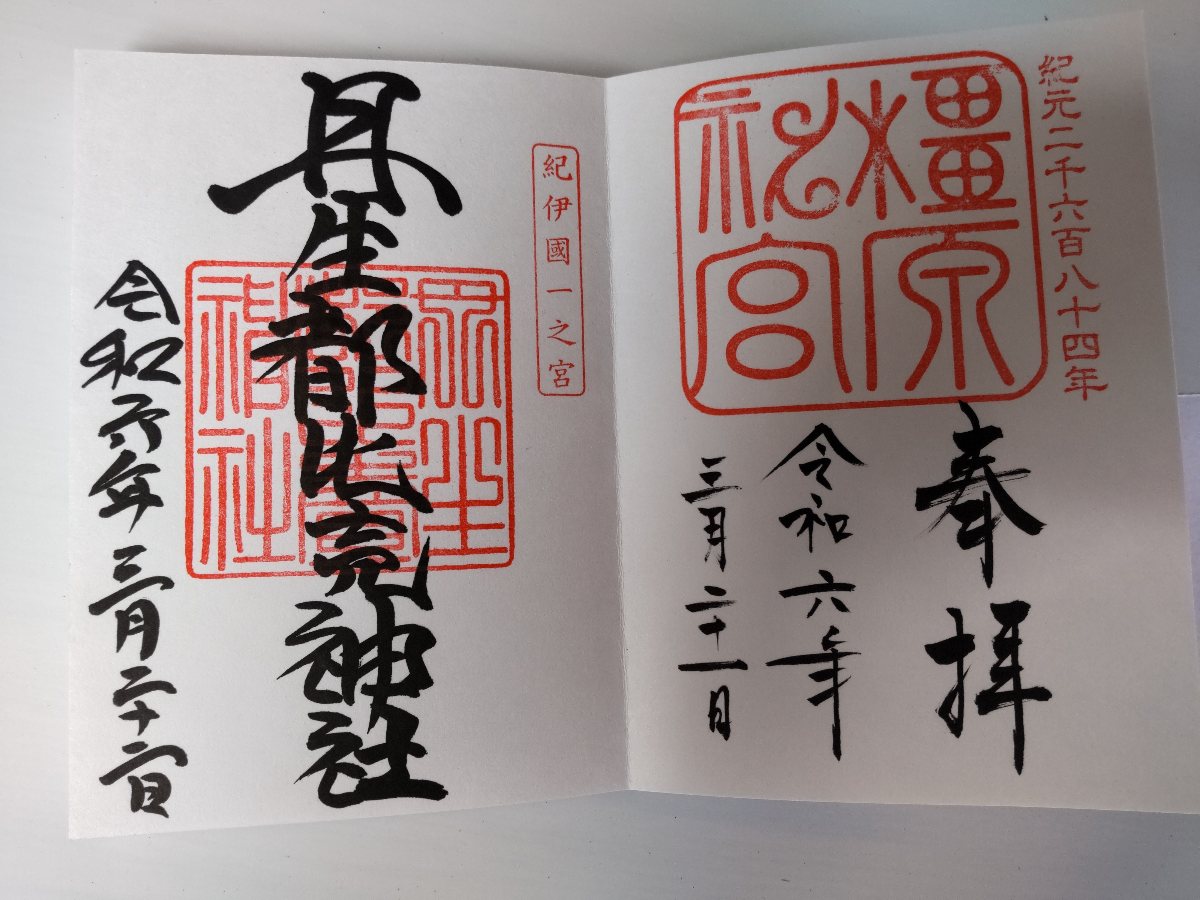 紀元二千六百八十四年
橿原神宮
奉拝
令和六年
三月二十一日
紀伊國一之宮
丹生都比売神社
令和六年三月二十日